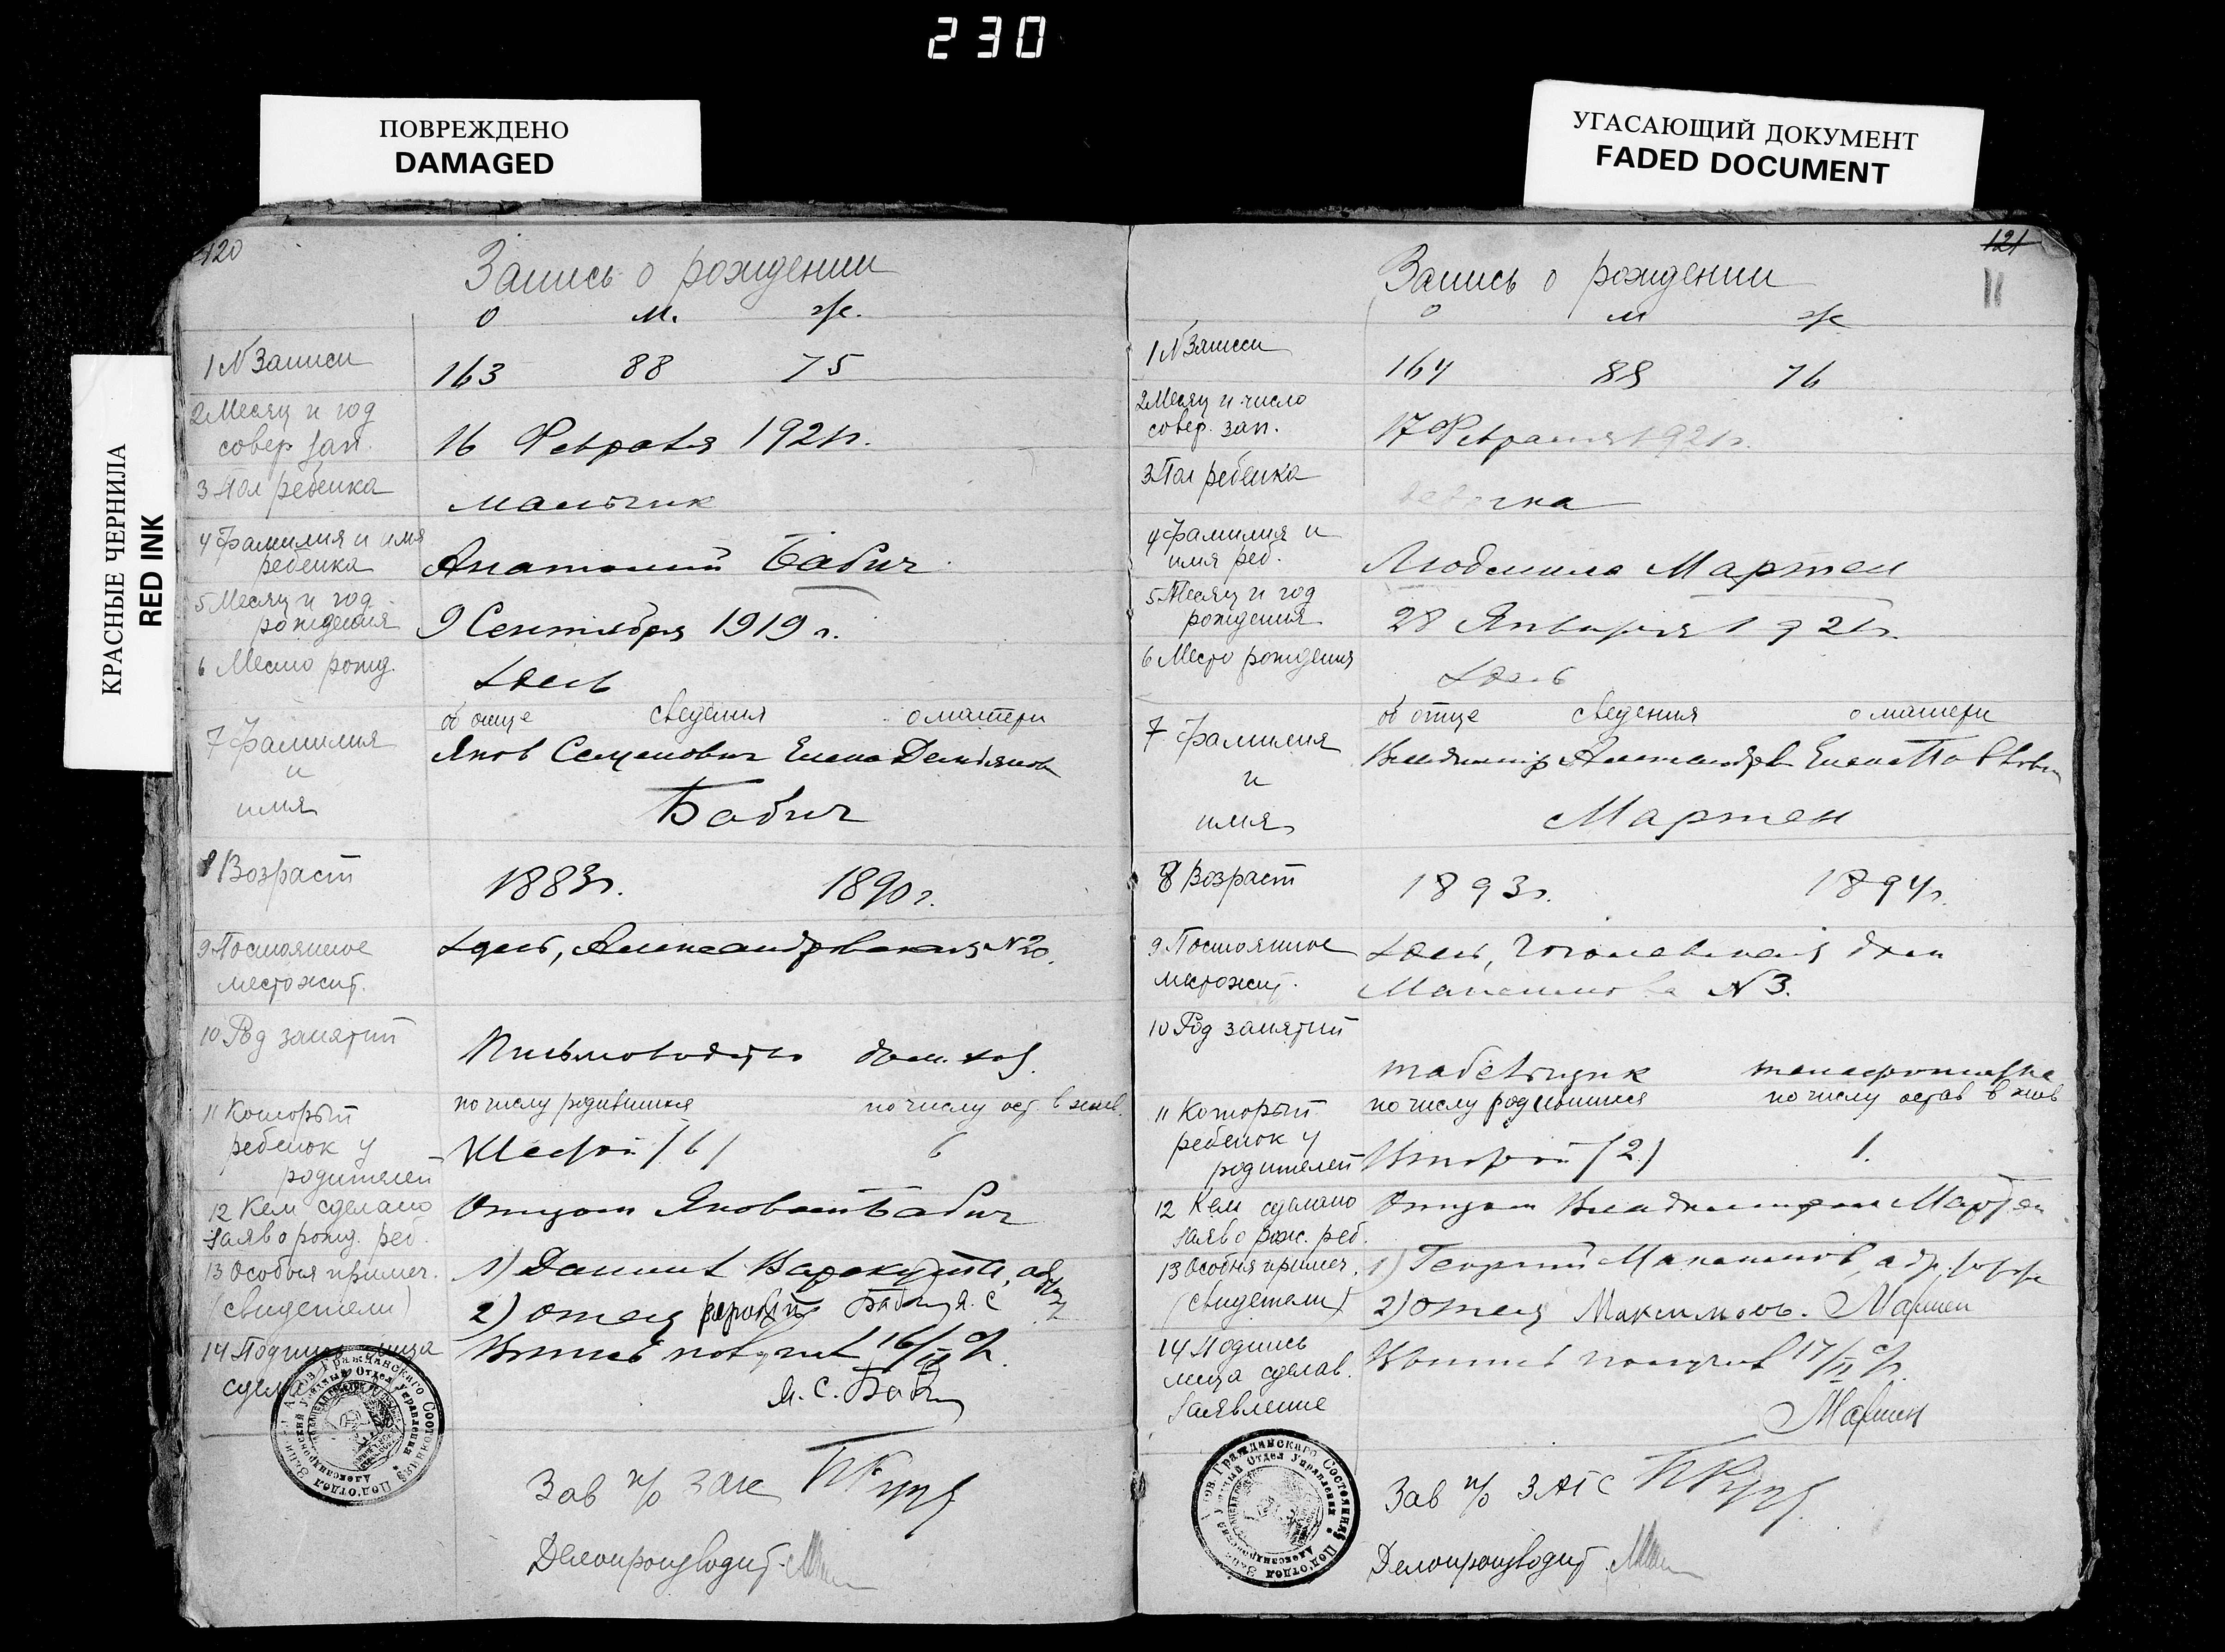 230
ПОВРЕЖДЕНО
DAMAGED
УГАСАЮЩИЙ ДОКУМЕНТ
FADED DOCUMENT
КРАСНЫЕ ЧЕРНИЛА
RED INK
120
Запись о рождении
о м. ж.
1 N Записи 163 88 75
2 Месяц и год
совер зап. 16 Февраля 1921 г.
3 Пол ребенка мальчик
4 Фамилия и имя
ребенка Анатолий Бабич
5 Месяц и год
рождения 9 Сентября 1919 г.
6 Место рожд.
об отце сведения о матери
7 Фамилия
и
имя
Яков Семенович Елена Демьянов
Бабич
8 Возраст 1883 г. 1890 г.
9 Постоянное
местожит.
Александровская N 20.
10 Род занятий
Письмоводство дом. хоз.
по числу родившихся по числу ост в жив.
11 Который
ребенок у
родителей
Шестой /6/ 6
12 Кем сделано
заяв о рожд. реб.
Отцом Яковом Бабич
13 Особыя примеч.
(свидетели)
1) Даниил
2) отец Бабич Я. С
14 Подпись лица
сдела
Выпись получил 16/II с/г.
Я. С. Бабич
Зав п/о Загс
Делопроизводит.
121
11
Запись о рождении
о м ж
1 N Записи 164 88 76
2 Месяц и число
совер. зап. 17 Февраля 1921 г.
3 Пол ребенка девочка
4 Фамилия и
имя реб. Людмила Мартен
5 Месяц и год
рождения 28 Января 1921 г.
6 Место рождения
об отце сведения о матери
7 Фамилия
и
имя
Владимир Александров Елена Павлов
Мартен
8 Возраст 1893 г. 1894 г.
9 Постоянное
местожит.
Гоголевская дом
Максимова N 3.
10 Род занятий
табельщик телефонистка
по числу родившихся по числу остав в жив
11 Который
ребенок у
родителей
Второй /2/ 1.
12 Кем сделано
заяв о рож. реб.
Отцом Владимиром Мартен
13 Особыя примеч.
(свидетели)
1) Георгий Максимов,
2) отец Максимовъ. Мартен
14 Подпись
лица сделав.
заявление
Выпись получил 17/II с/г.
Мартен
Зав п/о ЗАГС
Делопроизводит.
Под.отдел Записи Актов Гражданскаго Состояния
Александровский Уездный Отдел Управления